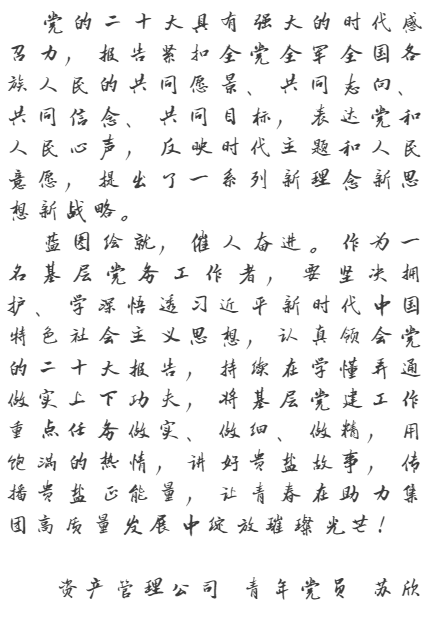 党的二十大具有强大的时代感
召力，报告紧扣全党全军全国各
族人民的共同愿景、共同志向、
共同信念、共同目标，表达党和
人民心声，反映时代主题和人民
意愿，提出了一系列新理念新思
想新战略。
蓝图绘就，催人奋进。作为一
名基层党务工作者，要坚决拥
护、学深悟透习近平新时代中国
特色社会主义思想，认真领会党
的二十大报告，持续在学懂弄通
做实上下功夫，将基层党建工作
重点任务做实、做细、做精，用
饱满的热情，讲好贵盐故事，传
播贵盐正能量，让青春在助力集
团高质量发展中绽放璀璨光芒！
资产管理公司 青年党员 苏欣